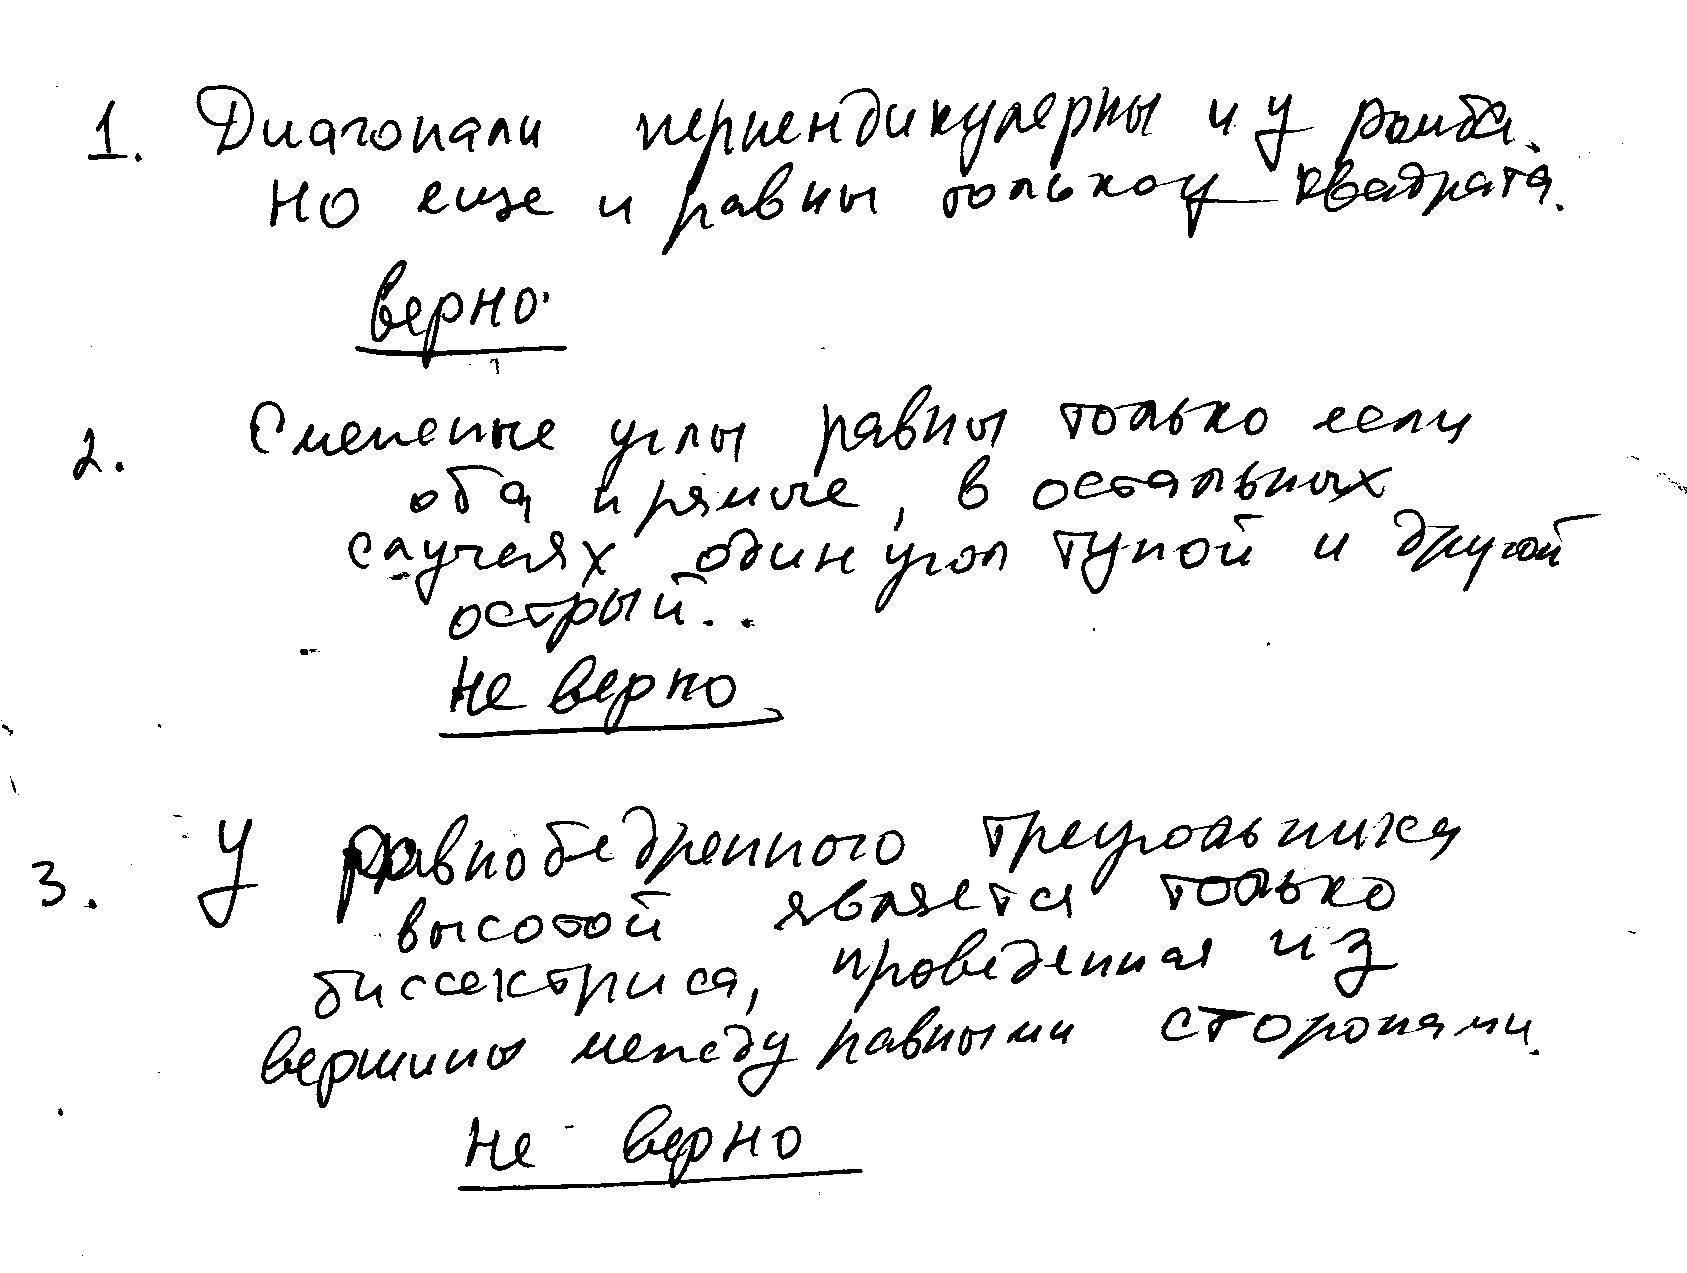 1. Диагонали перпендикулярны и у ромба.
но еще и равны только у квадрата.
верно.
2. Смежные углы равны только если
оба прямые, в остальных
случаях один угол тупой и другой
острый..
не верно
3. У равнобедренного треугольника
высотой является только
биссектриса, проведенная из
вершины между равными сторонами.
не верно